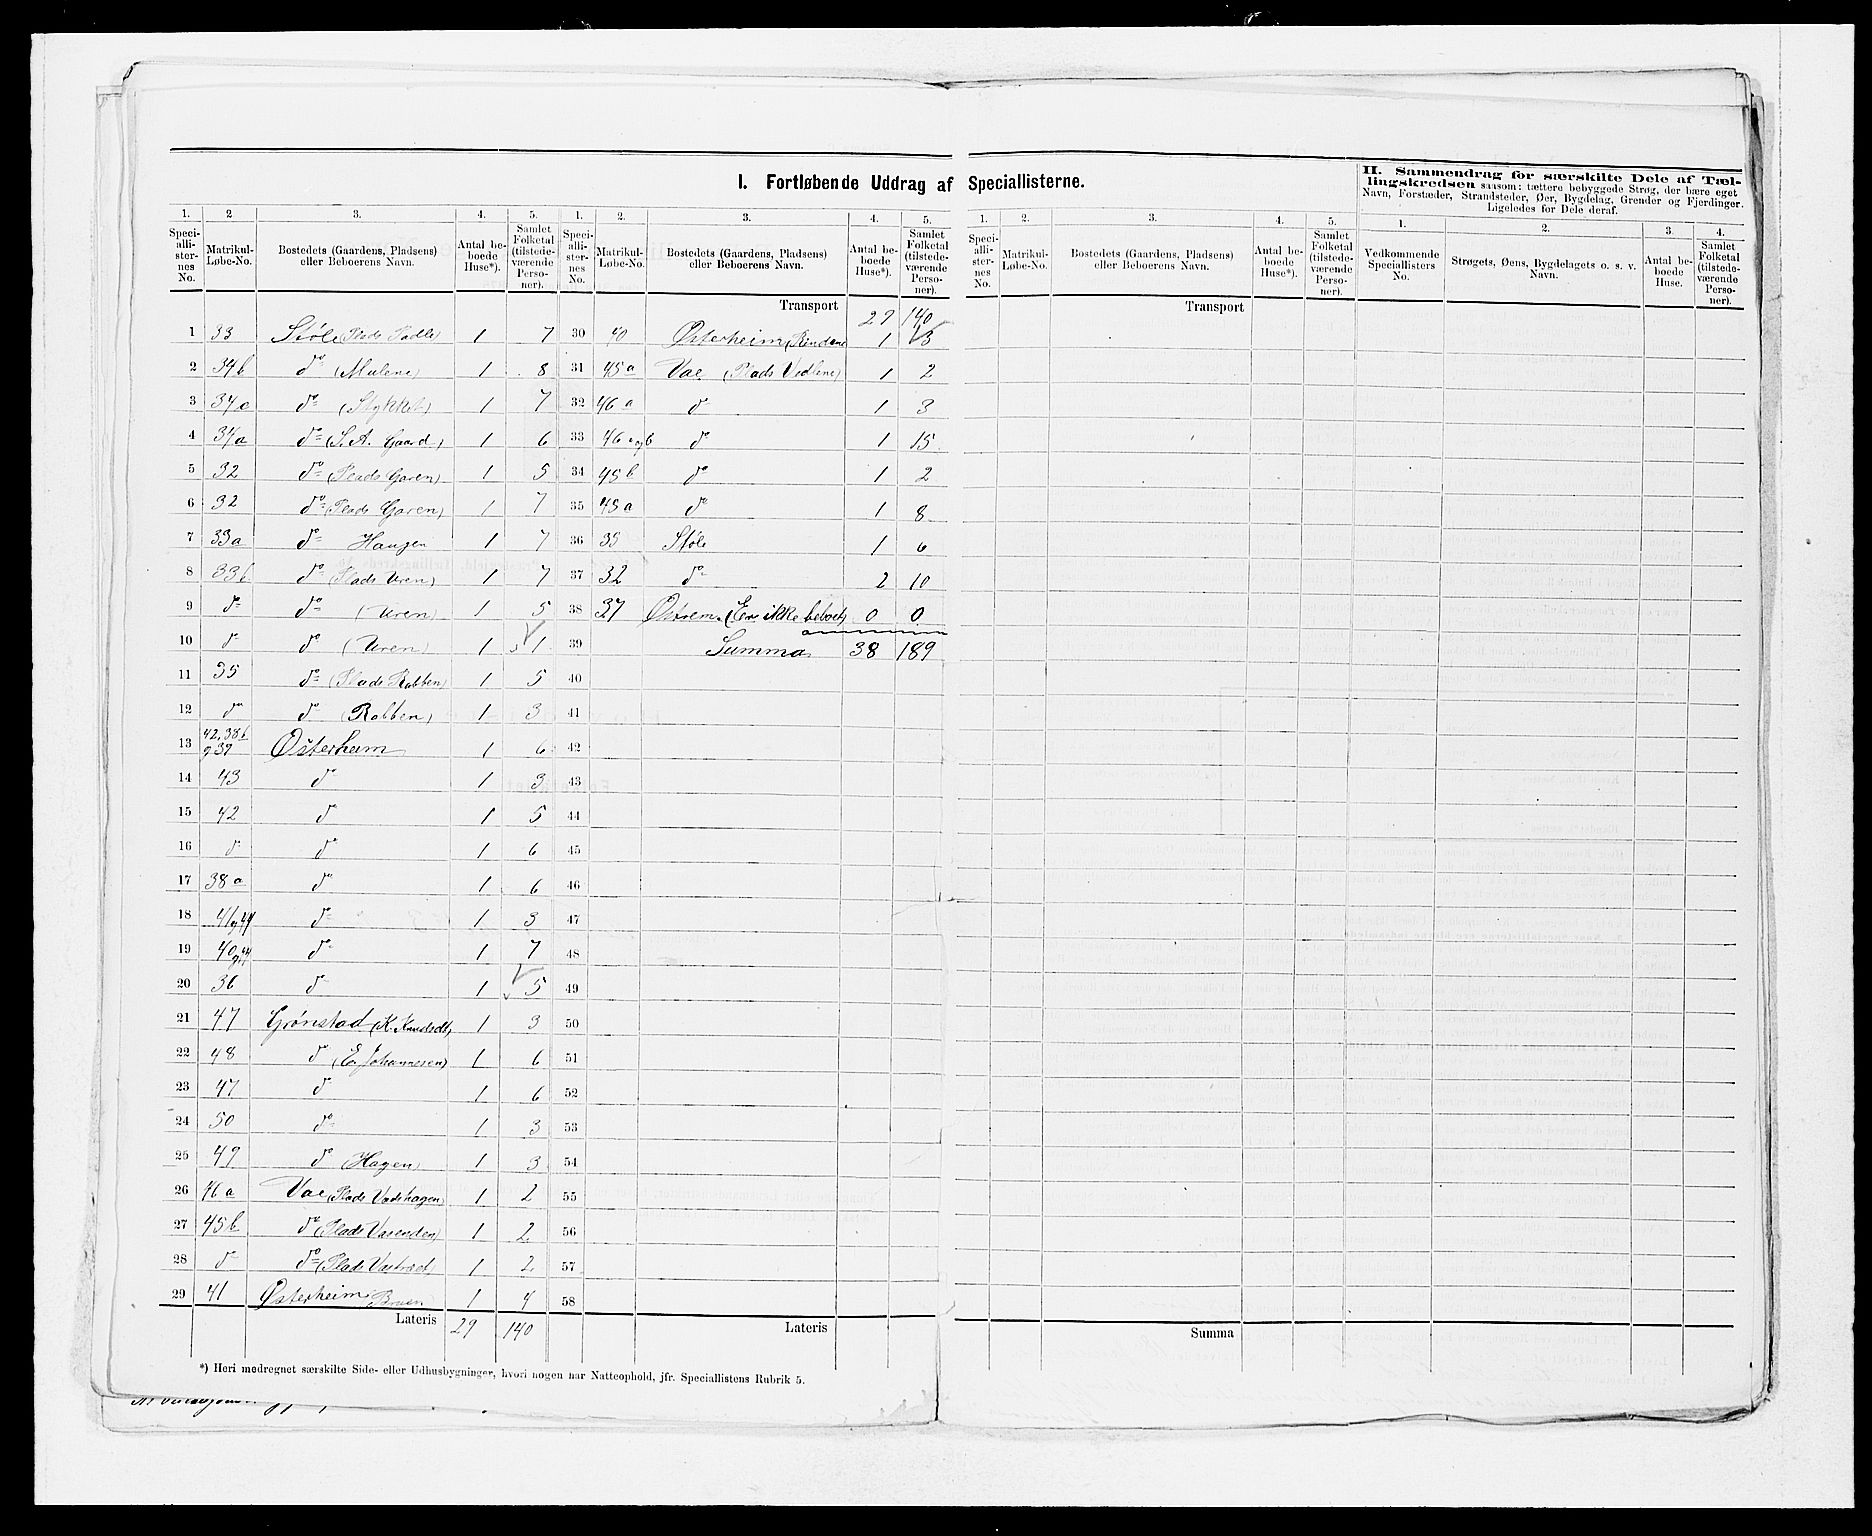 I. Fortløbende Uddrag af Speciallisterne.
II. Sammendrag for særskilte Dele af Tæl-
lingskredsen saasom: tættere bebyggede Strøg, der bære eget
Navn, Forstæder, Strandsteder, Øer, Bygdelag, Grender og Fjerdinger.
Ligeledes for Dele deraf.
1. 2 3. 4. 5. 1. 2. 3. 4. 5. 1. 2. 3. 4. 5. 1. 2. 3. 4.
Speci-alli-ster-nes No. Matrikul-Løbe-No. Bostedets (Gaardens, Pladsens) eller Beboerens Navn. Antal be-boede Huse*). Samlet Folketal (tilstede-værende Perso-ner).
Speci-alli-ster-nes No. Matrikul-Løbe-No. Bostedets (Gaardens, Pladsens) eller Beboerens Navn. Antal be-boede Huse*). Samlet Folketal (tilstede-værende Perso-ner).
Speci-alli-ster-nes No. Matrikul-Løbe-No. Bostedets (Gaardens, Pladsens) eller Beboerens Navn. Antal be-boede Huse*). Samlet Folketal (tilstede-værende Perso-ner).
Vedkommende Speciallisters No. Strøgets, Øens, Bygdelagets o. s. v. Navn. Antal be-boede Huse. Samlet Folketal (tilstede-værende Perso-ner).
1 33 Støle (Plads 1 7
2 34b do (Mulene) 1 8
3 34c do (Stykket) 1 7
4 34a do (S. A. Gaard) 1 6
5 32 do (Plads Garen) 1 5
6 32 do (Plads Garen) 1 7
7 33a do Haugen 1 7
8 33b do (Plads Uren) 1 7
9 do do (Uren) 1 5
10 do do (Uren) 1 1
11 35 do (Plads Rabben) 1 5
12 do do (Rabben) 1 3
13 42, 38b og 39 Østerheim 1 6
14 43 do 1 3
15 42 do 1 5
16 do do 1 6
17 38a do 1 6
18 41 og 44 do 1 3
19 40 og 44 do 1 7
20 36 do 1 5
21 47 Grønstad (K. 1 3
22 48 do (E. Johannesen) 1 6
23 47 do 1 6
24 50 do 1 3
25 49 do (Hagen) 1 3
26 46a Vae (Plads Vadshagen) 1 2
27 45b do (Plads Vaeenden) 1 2
28 do do (Plads 1 2
29 41 Østerheim 1 4
Lateris 29 140
Transport 29 140
30 40 Østerheim (Rindane 1 3
31 45a Vae (Plads Vedlene) 1 2
32 46a do 1 3
33 46a og b do 1 15
34 45b do 1 2
35 45a do 1 8
36 35 Støle 1 6
37 32 do 2 10
38 37 Østrem (Er ikke beboet) 0 0
39 Summa 38 189
40
41
42
43
44
45
46
47
48
49
50
51
52
53
54
55
56
57
58
Lateris
Transport
Summa
*) Heri medregnet særskilte Side- eller Udhusbygninger, hvori nogen har Natteophold, jfr. Speciallistens Rubrik 5.